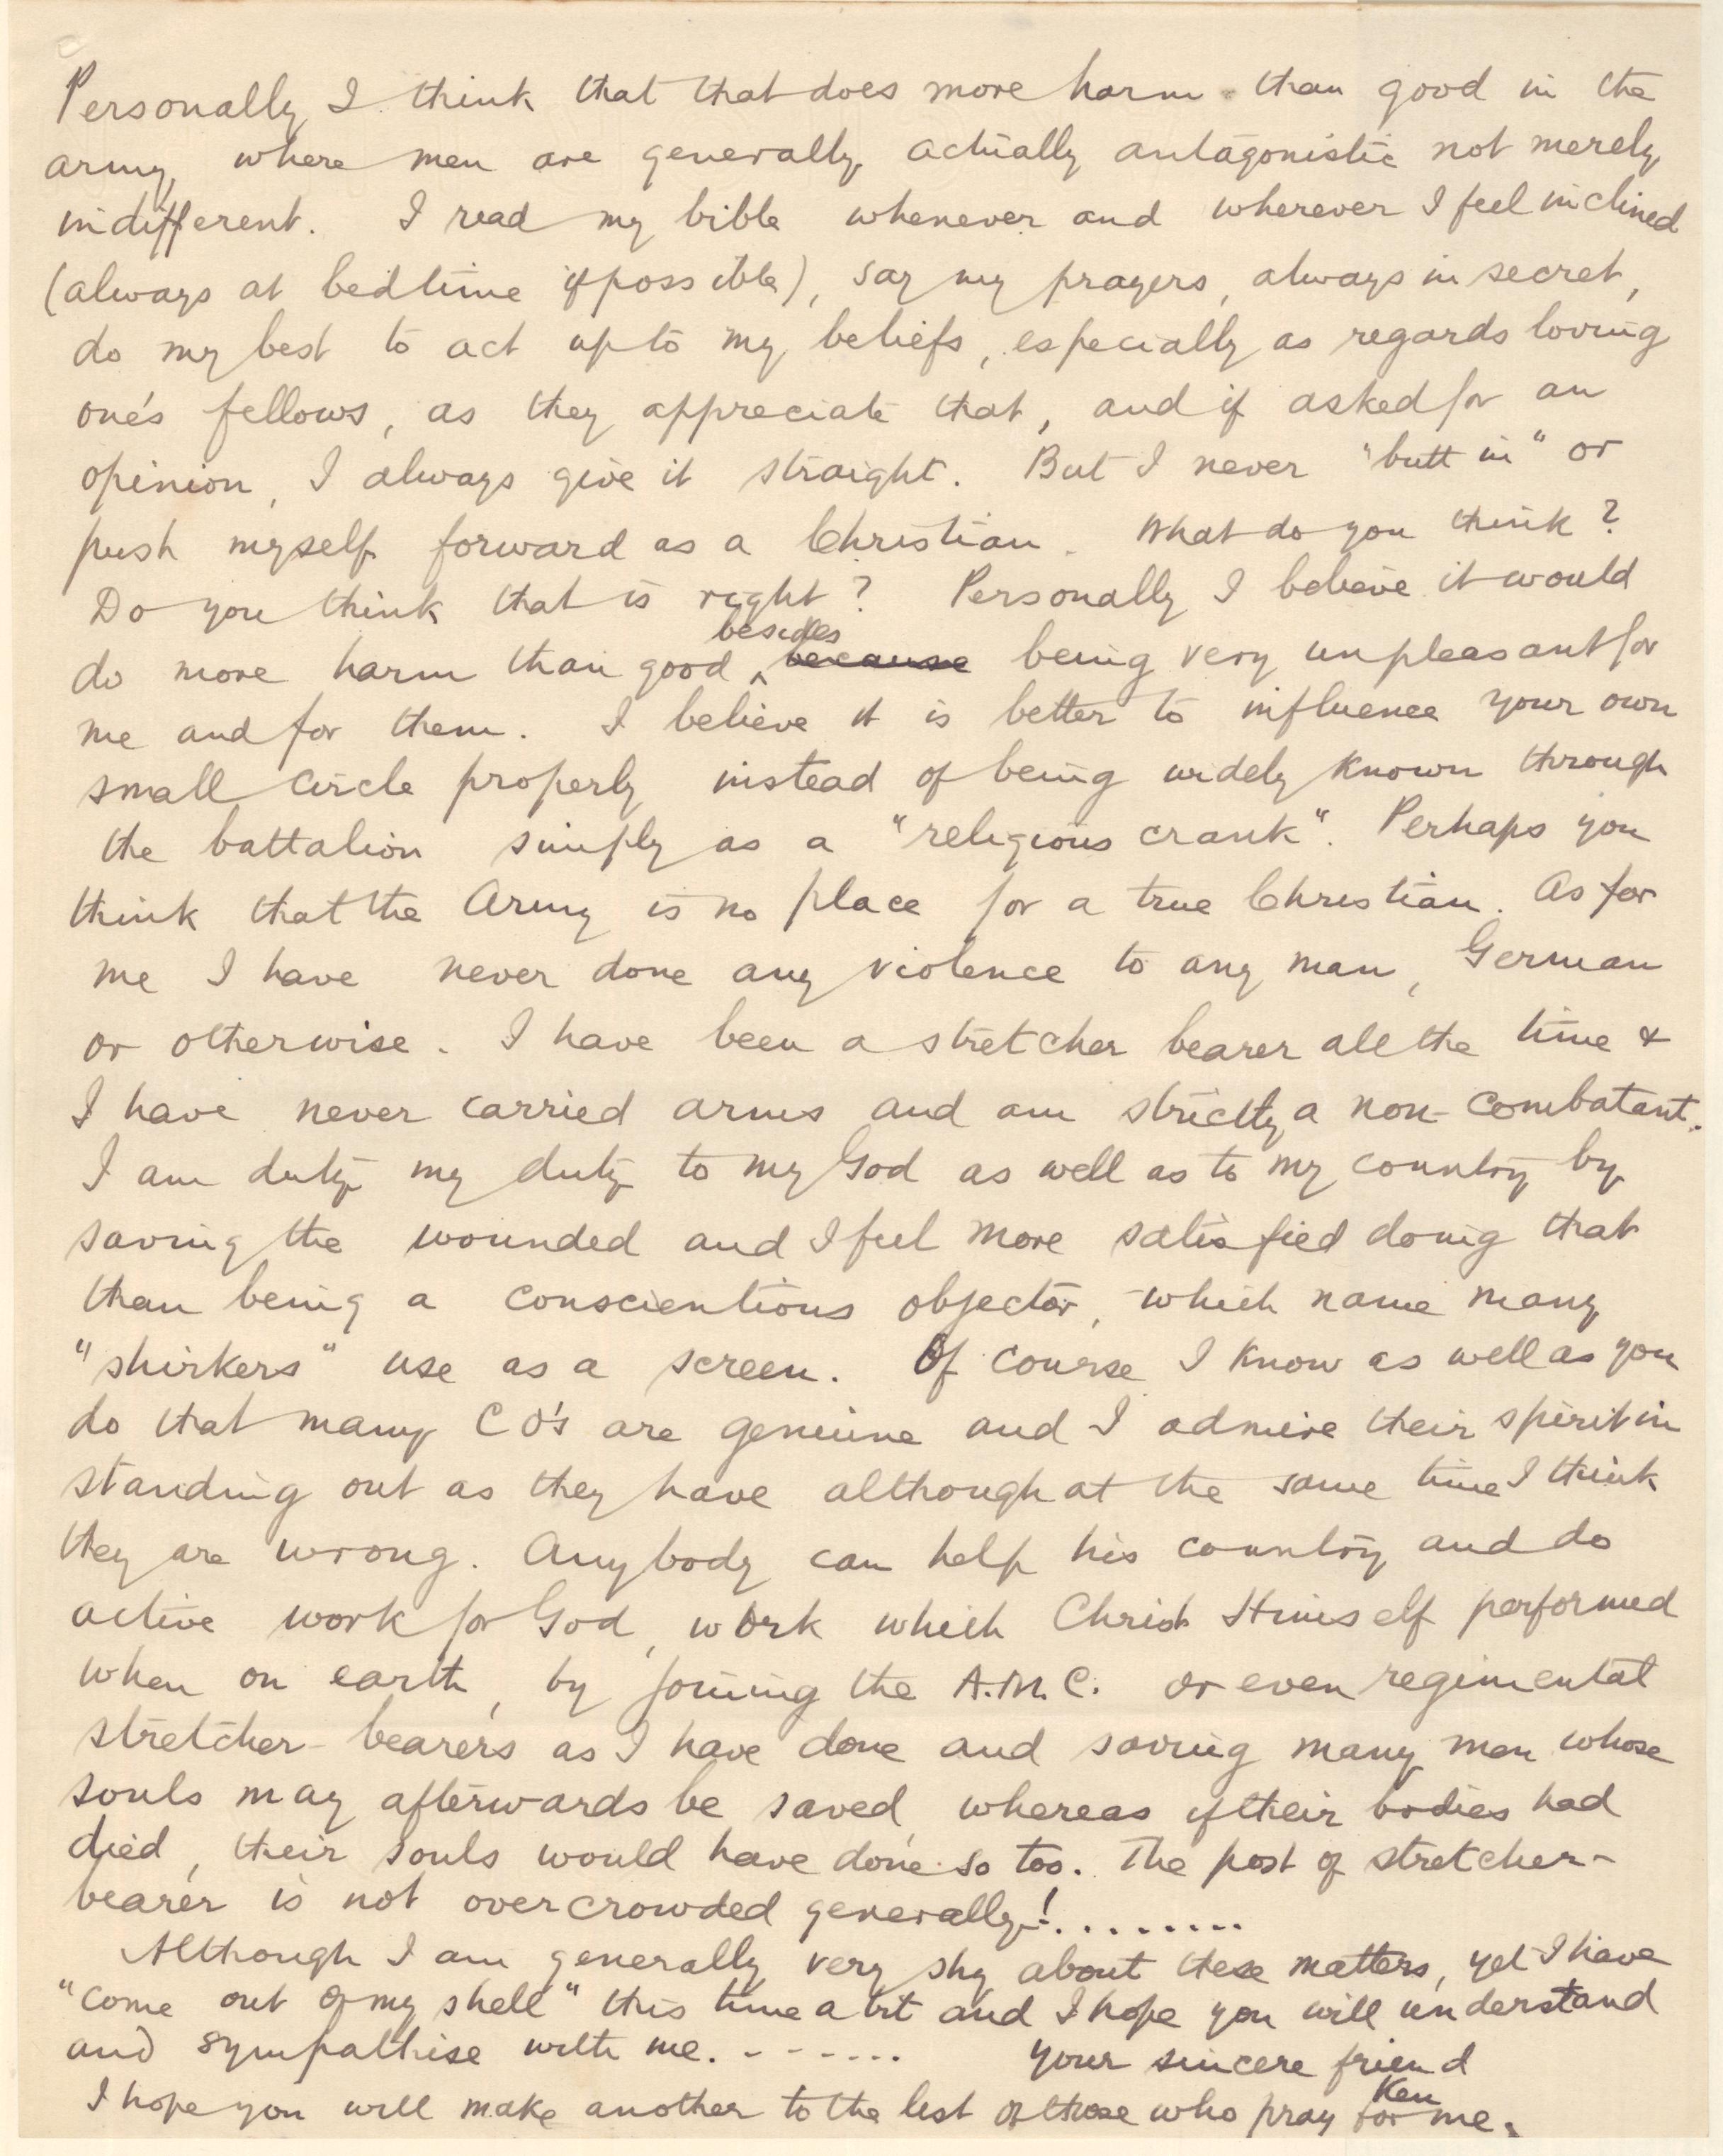 Personally I think that that does more harm than good in the
army, where men are generally actually antagonistic not merely
indifferent. I read my bible whenever and wherever I feel inclined
(always at bedtime if possible), say my prayers, always in secret,
do my best to act up to my beliefs, especially as regards loving
one's fellows, as they appreciate that, and if asked for an
opinion, I always give it straight. But I never "butt in" or
push myself forward as a Christian. What do you think?
Do you think that is right? Personally I believe it would
besides
do more harm than good, ^ because being very unpleasant for
me and for them. I believe it is better to influence your own
small circle properly instead of being widely known through
the battalion simply as a "religious crank". Perhaps you
think that the Army is no place for a true Christian. As for
me I have never done any violence to any man, German
or otherwise. I have been a stretcher bearer all the time &
I have never carried arms and am strictly a non-combatant.
I am duty my duty to my God as well as to my country by
saving the wounded and I feel more satisfied doing that
than being a conscientious objector, which name many
"shirkers" use as a screen. Of course I know as well as you
do that many CO's are genuine and I admire their spirit in
standing out as they have although at the same time I think
they are wrong. Anybody can help his country and do
active work for God, work which Christ Himself performed
when on earth, by joining the A.M.C. or even regimental
stretcher-bearers as I have done and saving many men whose
souls may afterwards be saved, whereas if their bodies had
died, their souls would have done so too. The post of stretcher-
bearer is not overcrowded generally!........
Although I am generally very shy about these matters, yet I have
"come out of my shell" this time a bit and I hope you will understand
and sympathise with me.------- your sincere friend
Ken
I hope you will make another to the list of those who pray for me.